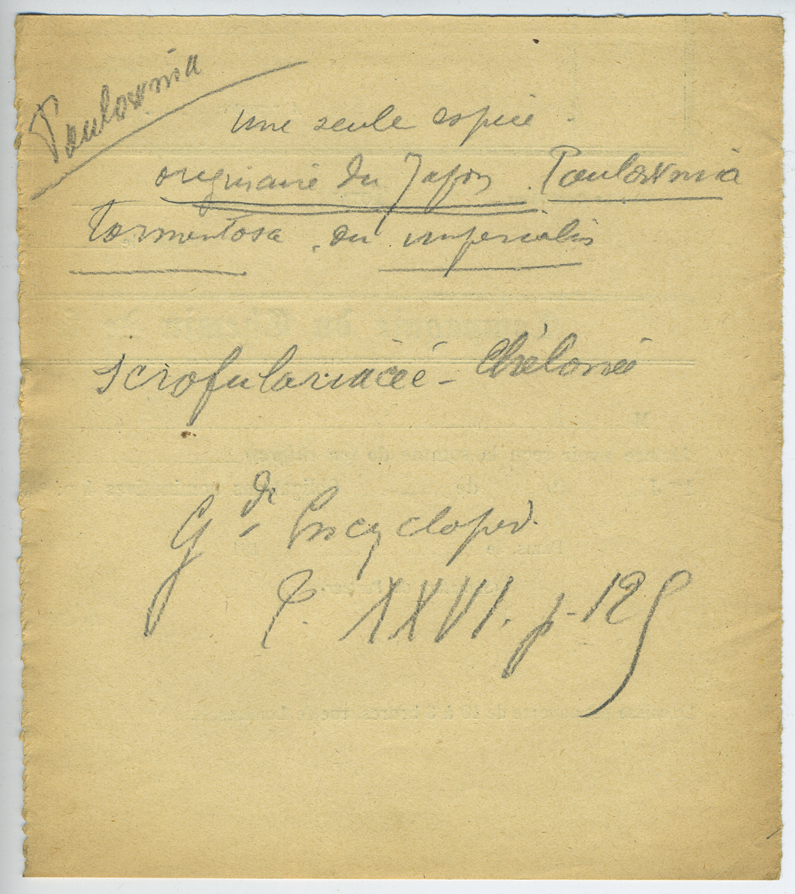 Paulownia
une seule espèce.
originaire du Japon. Paulownia
tormentosa. ou imperialis
scrofulariacéé - Chélonéé
Gde Encycloped.
T. XXVI. p. 125